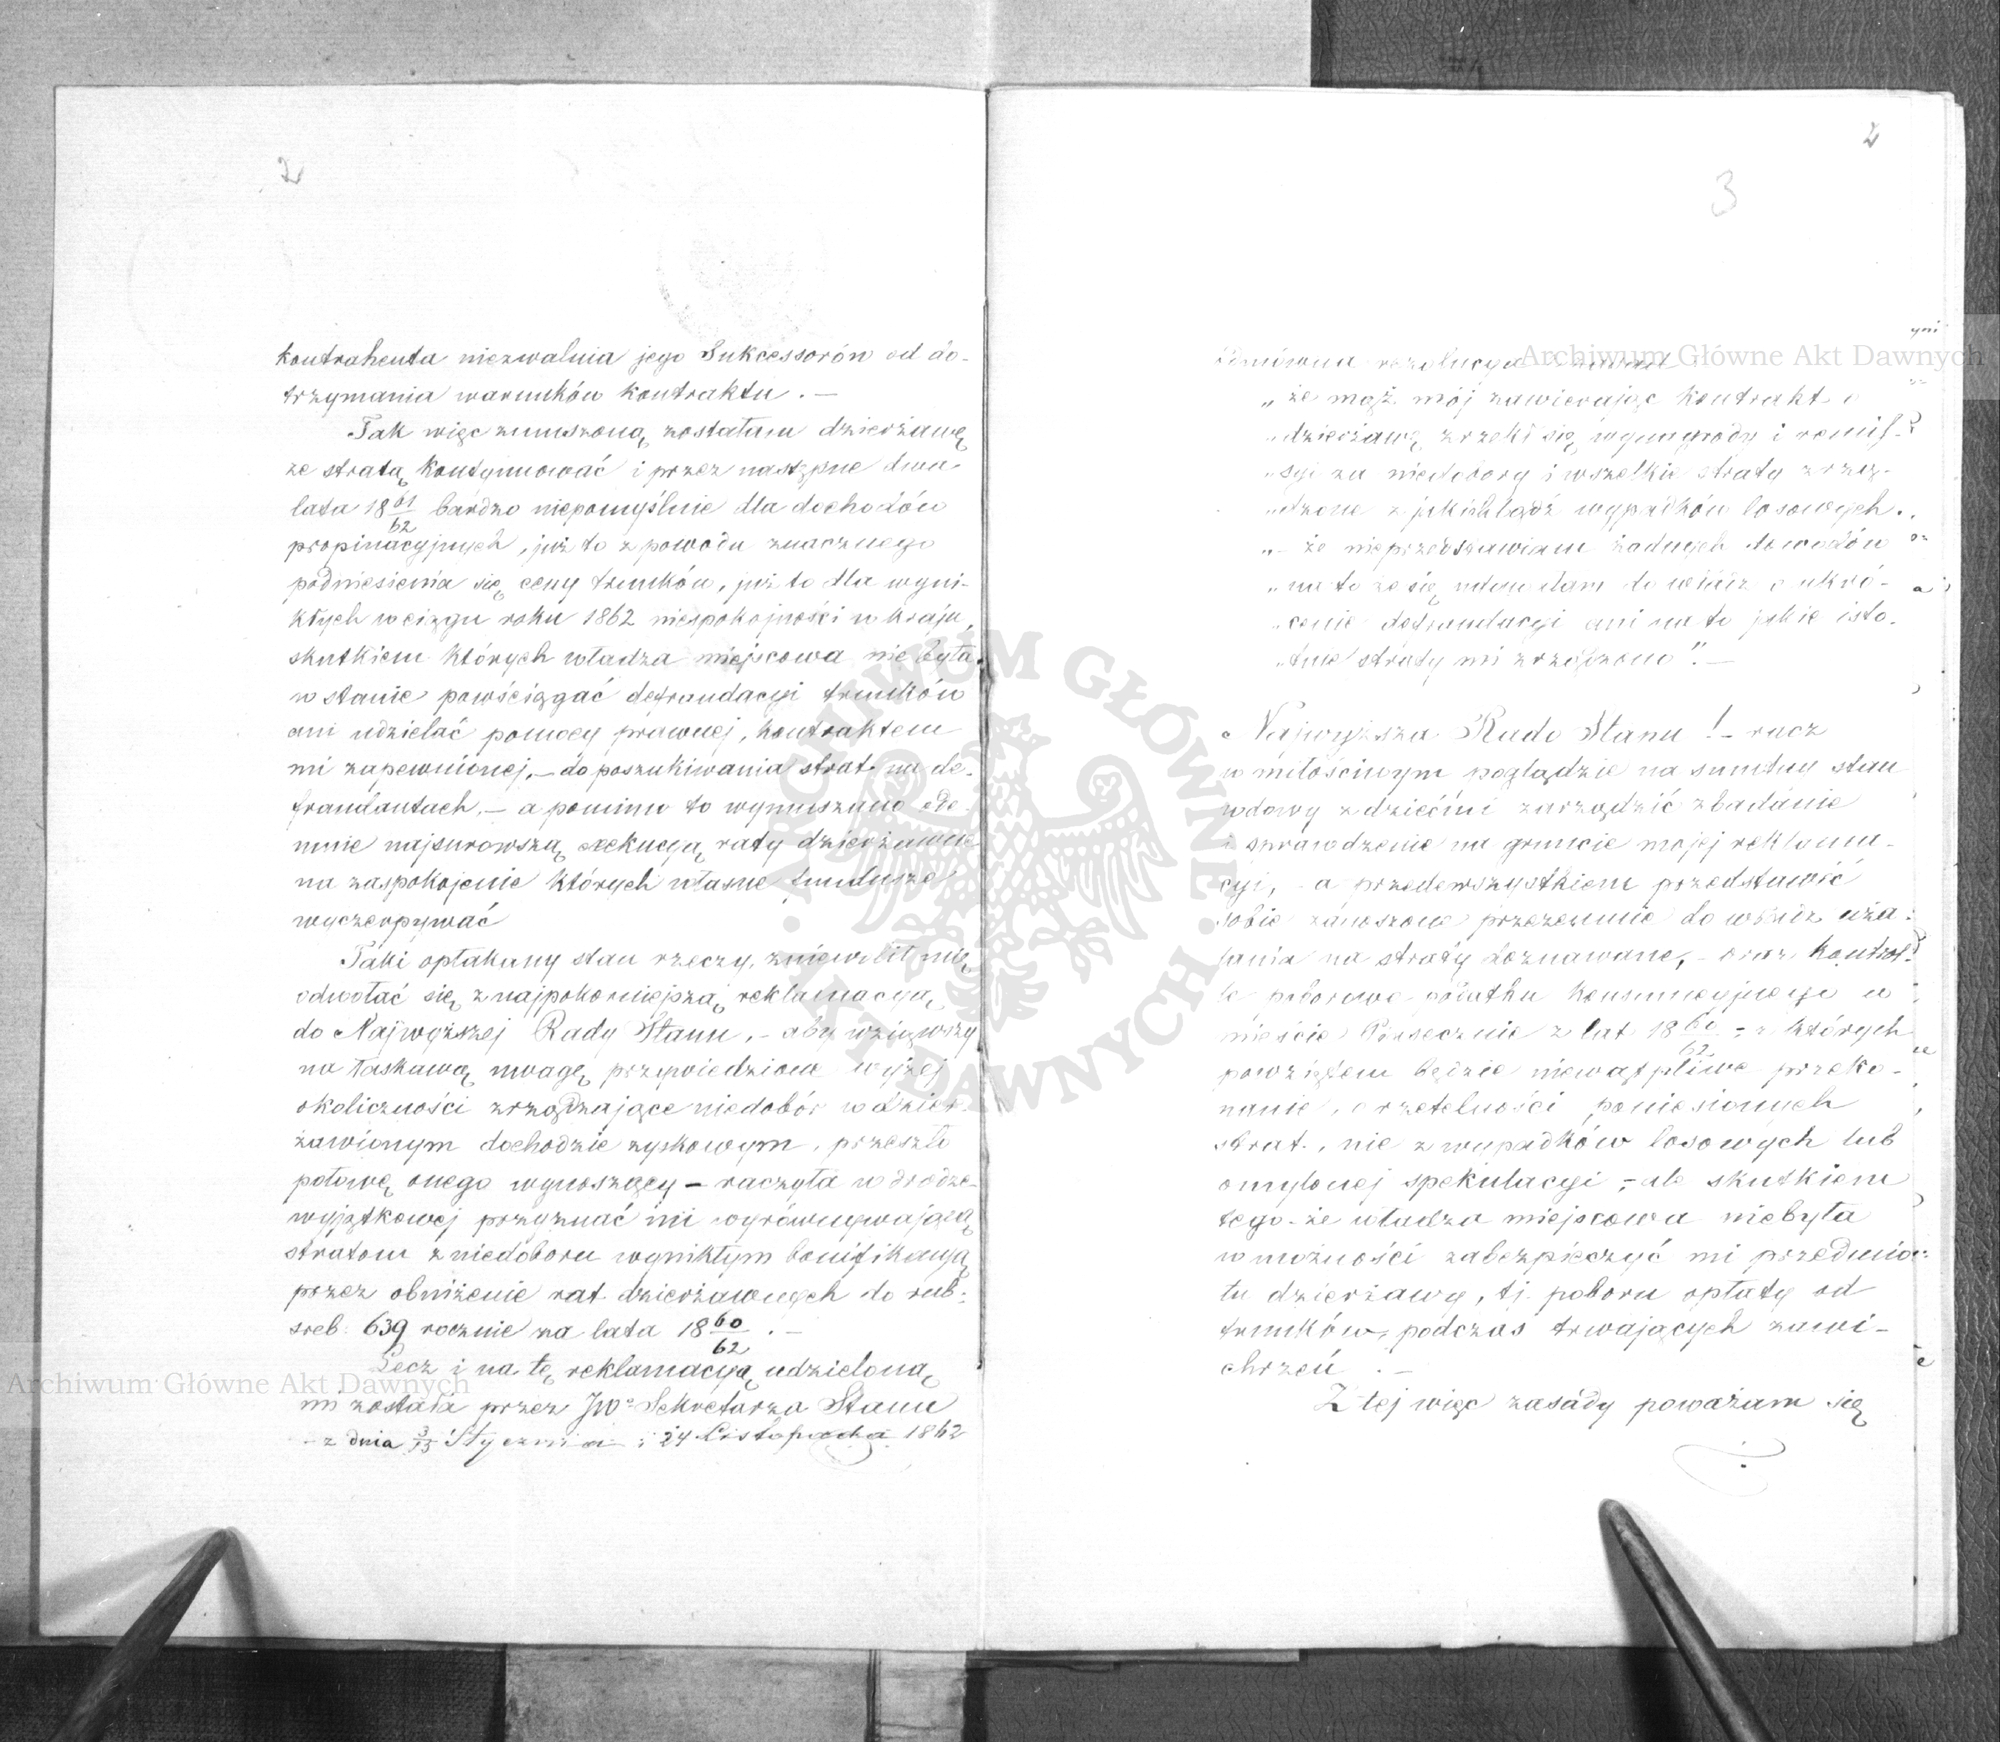 2
kontrahenta niezwalnia jego Sukcessorów od do-
trzymania warunków kontraktu. —
Tak więc zmuszoną zostałam dzierżawę
ze stratą kontynuować i przez następne dwa
lata 18 61/62 bardzo niepomyślnie dla dochodów
propinacyjnych, już to z powodu znacznego
podniesienia się ceny trunków, już to dla wyni-
kłych w ciągu roku 1862 niespokojności w kraju,
skutkiem których władza miejscowa nie była
w stanie powściągać defraudacyi trunków
ani udzielać pomocy prawnej, kontraktem
mi zapewnionej, — do poszukiwania strat na de-
fraudantach, — a pomimo to wymuszano ode-
mnie najsurowszą exekucyą raty dzierżawne
na zaspokojenie których własne fundusze
wyczerpywać
Taki opłakany stan rzeczy, zniewolił mię
odwołać się z najpokorniejszą reklamacyą
do Najwyższej Rady Stanu, — aby wziąwszy
na łaskawą uwagę przywiedzione wyżej
okoliczności zrządzające niedobór w dzier-
żawionym dochodzie zyskowym, przeszło
połowę onego wynoszący — raczyła w drodze
wyjątkowej przyznać mi wyrównywającą
stratom z niedoboru wynikłym bonifikacyą
przez obniżenie rat dzierżawnych do rub:
sreb: 639 rocznie za lata 18 60/62. —
Lecz i na tę reklamacyą udzieloną
mi została przez JWo Sekretarza Stanu
z dnia 3/15 Stycznia i 24 Listopada 1862
2
3
rezolucya
„ że mąż mój zawierając kontrakt o
„ dzierżawę zrzekł się wynagrodzy i remis-
„ syi za niedobory i wszelkie straty zrzą-
„ dzone z jakichbądź wypadków losowych.
„ — że nieprzedstawiam żadnych dowodów
„ na to że się udawałam do władz o ukró-
„ cenie defraudacyi ani na to jakie isto-
„ tne straty mi zrządzono". —
Najwyższa Rado Stanu! — racz
w miłościwym poglądzie na smutny stan
wdowy z dziećmi zarządzić zbadanie
i sprawdzenie na gruncie mojej reklama-
cyi, — a przedewszystkiem przedstawić
sobie zanoszone przezemnie do władz uża-
lania na straty doznawane, — oraz kontrol-
le poborowe podatku konsumcyjnego w
mieście Piasecznie z lat 18 60/62 — z których
powziętem będzie niewątpliwe przeko-
nanie, o rzetelności poniesionych
strat, nie z wypadków losowych lub
omylonej spekulacyi, — ale skutkiem
tego — że władza miejscowa niebyła
w możności zabezpieczyć mi przedmio-
tu dzierżawy, tj. poboru opłaty od
trunków, podczas trwających zawi-
chrzeń. —
Z tej więc zasady poważam się
Archiwum Główne Akt Dawnych
Archiwum Główne Akt Dawnych
ARCHIWUM GŁÓWNE AKT DAWNYCH